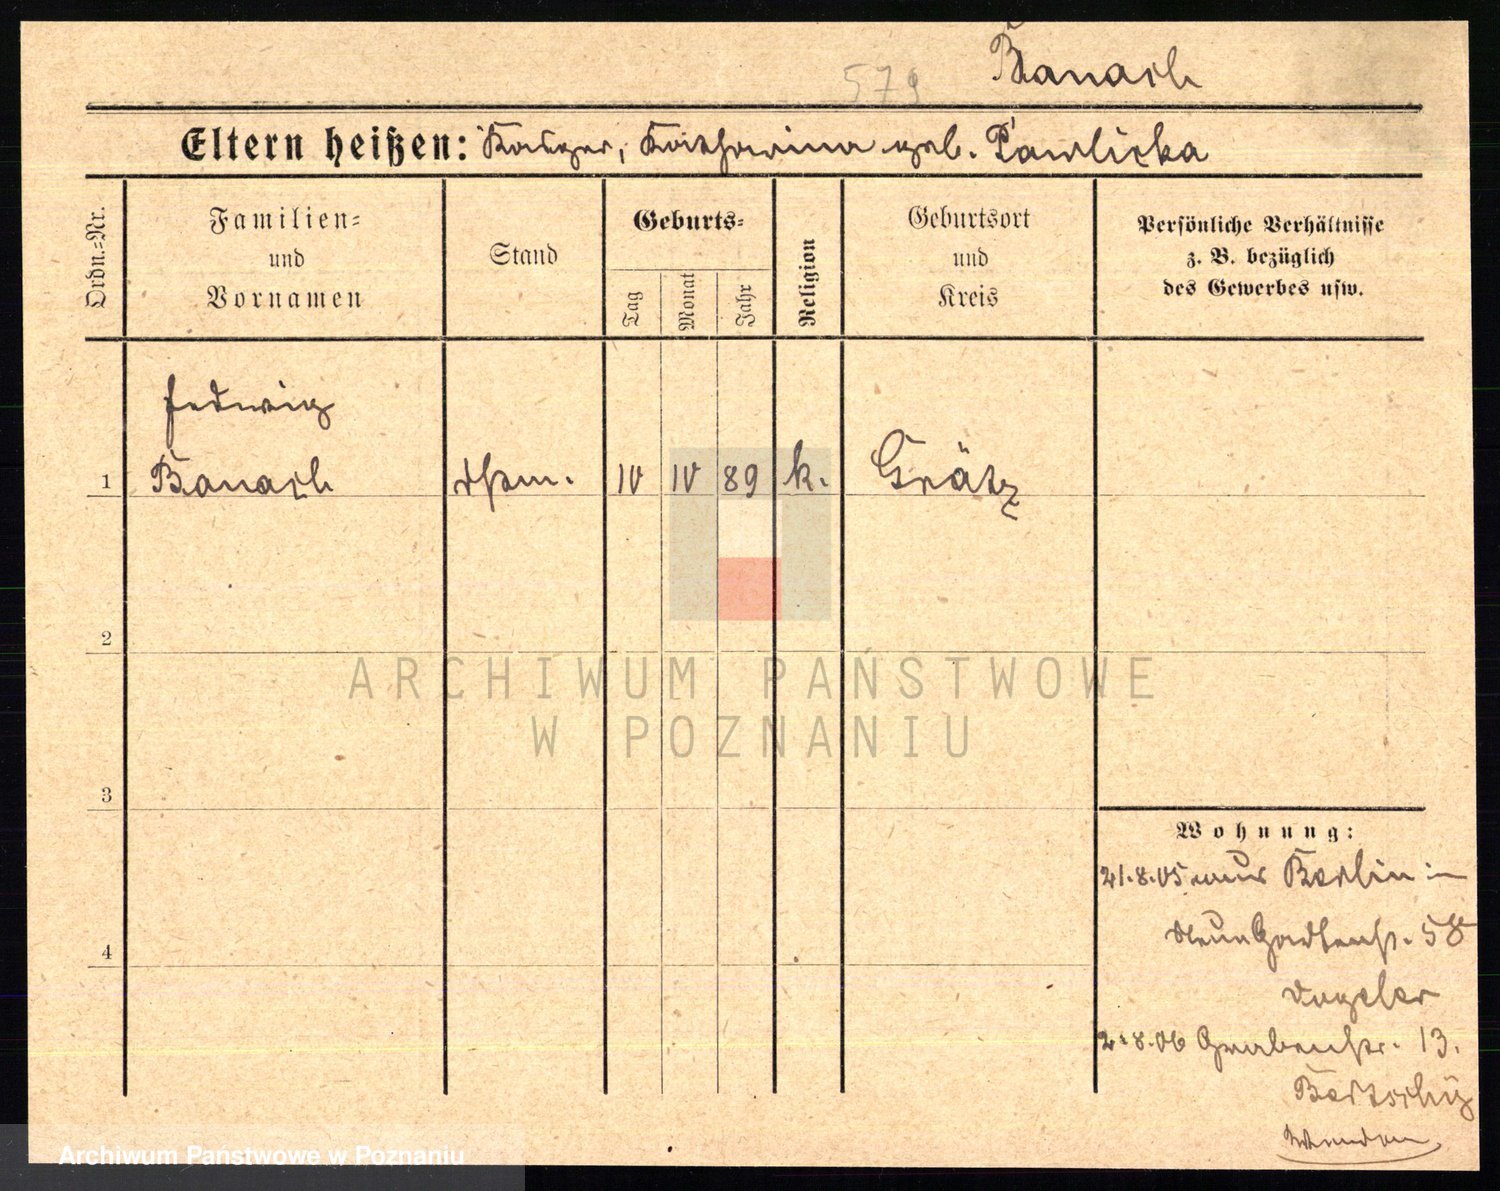 579 Banach
Eltern heißen: Kasper, Katharina geb. Pawlicka
Ordn.=Nr.
Familien=
und
Vornamen
Stand
Geburts=
Tag
Monat
Jahr
Religion
Geburtsort
und
Kreis
Persönliche Verhältnisse
z. B. bezüglich
des Gewerbes usw.
Hedwig
1 Banach Dstm. 10 10 89 k. Grätz
2
3
4
Wohnung:
21.8.05 Berlin in
58
2.8.06 Grabenstr. 13.
ARCHIWUM PAŃSTWOWE
W POZNANIU
Archiwum Państwowe w Poznaniu